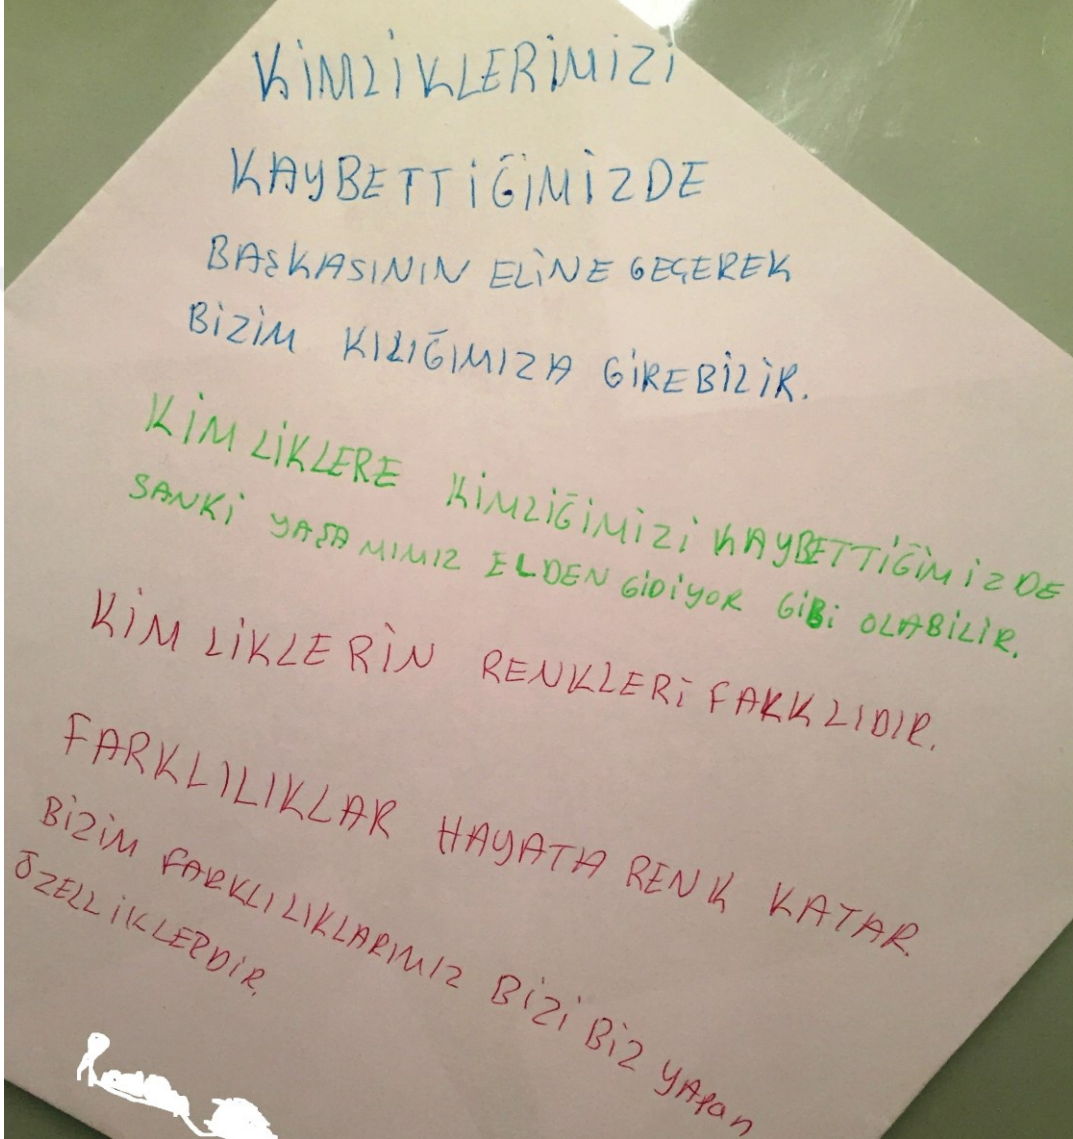 KİMLİKLERİMİZİ
KAYBETTİĞİMİZDE
BAŞKASININ ELİNE GEÇEREK
BİZİM KILIĞIMIZA GİREBİLİR.
KİMLİKLERE KİMLİĞİMİZİ KAYBETTİĞİMİZDE
SANKİ YAŞAMIMIZ ELDEN GİDİYOR GİBİ OLABİLİR.
KİMLİKLERİN RENKLERİ FARKLIDIR.
FARKLILIKLAR HAYATA RENK KATAR.
BİZİM FARKLILIKLARIMIZ BİZİ BİZ YAPan
ÖZELLİKLERDİR.